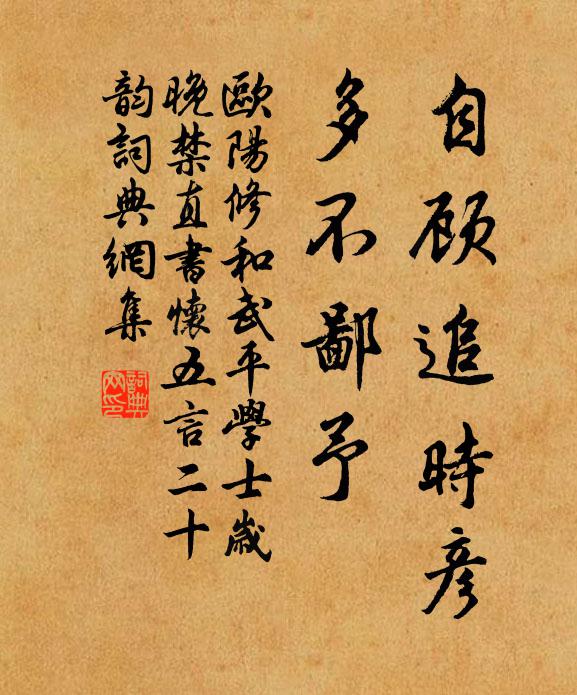 自顾追時彦
多不鄙予
歐陽修和武平學士歲
晚禁直書懷五言二十
韵詞典網集
詞典
网印